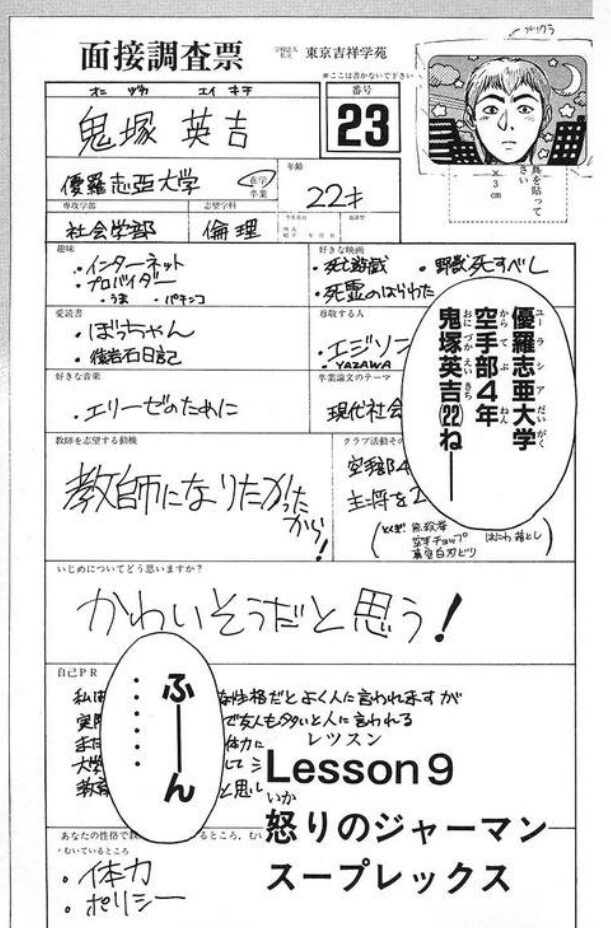 面接調査票
学校法人
私立
東京吉祥学苑
※ここは書かないで下さい
プリクラ
オニ ヅカ エイ キチ
鬼塚 英吉
番号
23
真を貼って
さい
×3cm
優羅志亜大学
在学
卒業
年齢
22才
専攻学部
社会学部
志望学科
倫理
趣味
・インターネット
・プロバイダー
・うま ・パチンコ
好きな映画
・死亡遊戯 ・野獣死すべし
・死霊のはらわた
愛読書
・ぼっちゃん
・俊岩石日記
尊敬する人
・エジソン
・YAZAWA
好きな音楽
・エリーゼのために
卒業論文のテーマ
現代社会
優羅志亜大学
ユーラシアだいがく
空手部4年
からてぶ ねん
鬼塚英吉(22)ねーー
おにづかえいきち
教師を志望する動機
教師になりたかった
から!
クラブ活動その
空手部4
主将を2
とくぎ
空手チョップ
はにわ落とし
真空白刃どり
いじめについてどう思いますか?
かわいそうだと思う!
自己PR
私は
な性格だとよく人に言われますが
実際
で友人も多いと人に言われる
また
体力に
大学
して
教育
と思い
ふーーん
・・・・・・
レッスン
Lesson 9
いか
怒りのジャーマン
スープレックス
あなたの性格で教
るところ, む
・むいているところ
・体力
・ポリシー